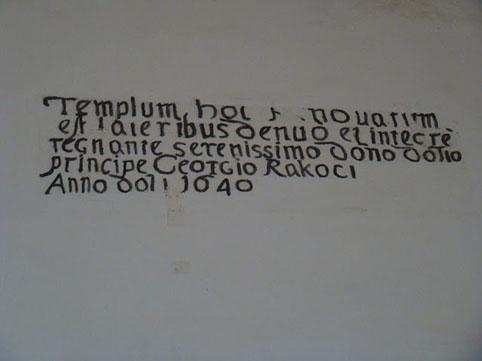 Templum hoc r novatum
est lateribus denuo et integrè
regnante serenissimo dono dotio
principe Georgio Rakoci
Anno doli 1640